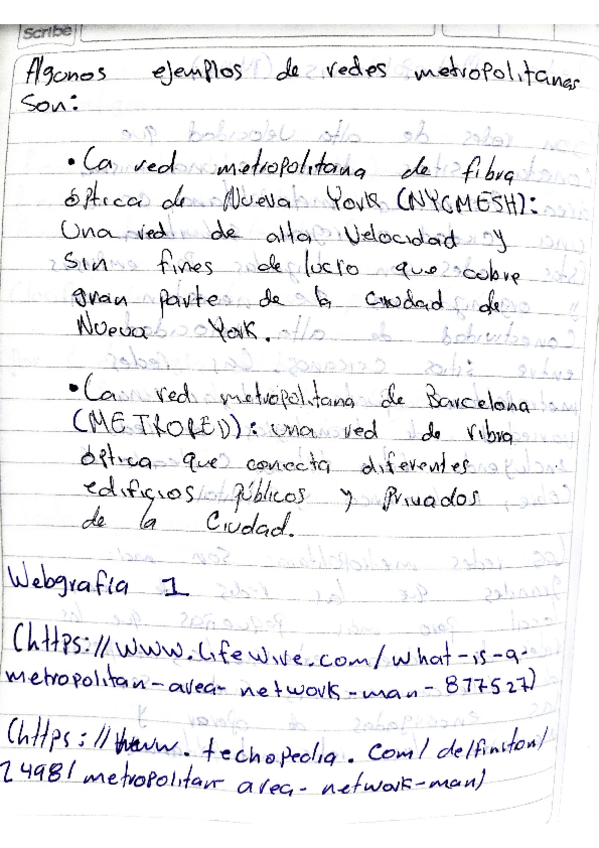 Scribe
Algunos ejemplos de redes metropolitanas
Son:
• La red metropolitana de fibra
óptica de Nueva York (NYCMESH):
Una red de alta Velocidad y
Sin fines de lucro que cubre
gran parte de la Ciudad de
Nueva York.
• La red metropolitana de Barcelona
(METRORED): una red de ribra
óptica que conecta diferentes
edificios públicos y Privados
de la Ciudad.
Webgrafía 1
(https://www.lifewire.com/what-is-a-
metropolitan-area-network-man-877527)
(https://www.techopedia.com/definiton/
24981 metropolitan area-network-man)